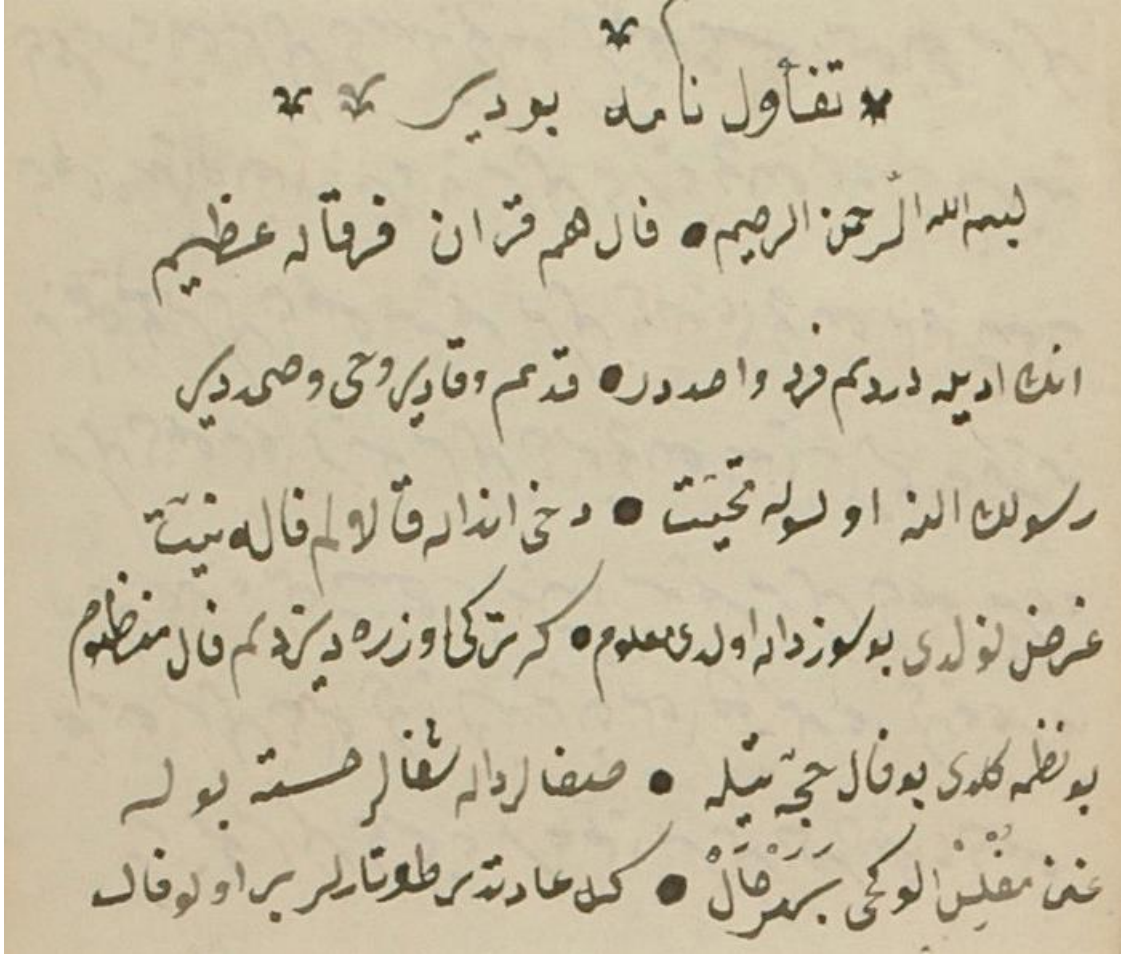 تفأول نامه بودير
بسم الله الرحمن الرحيم • فال هم قران فرقان عظيم
انك اديله درديم فرد واحددر • قديم وقادير وحی وصمددير
رسولك الينه اولسون تحيت • دخی اندان قالالم فاله نيت
غرض نولدی بو سوزدان اولدی معلوم • كه تركی اوزره ديزديم فال منظوم
بو نظمه كلدی بو فال حجة بيله • صنفالردان شفالر خسته بوله
غنی مفلس الوكجی بهرحال • كه عادتدر طوتارلر بر اولو فال